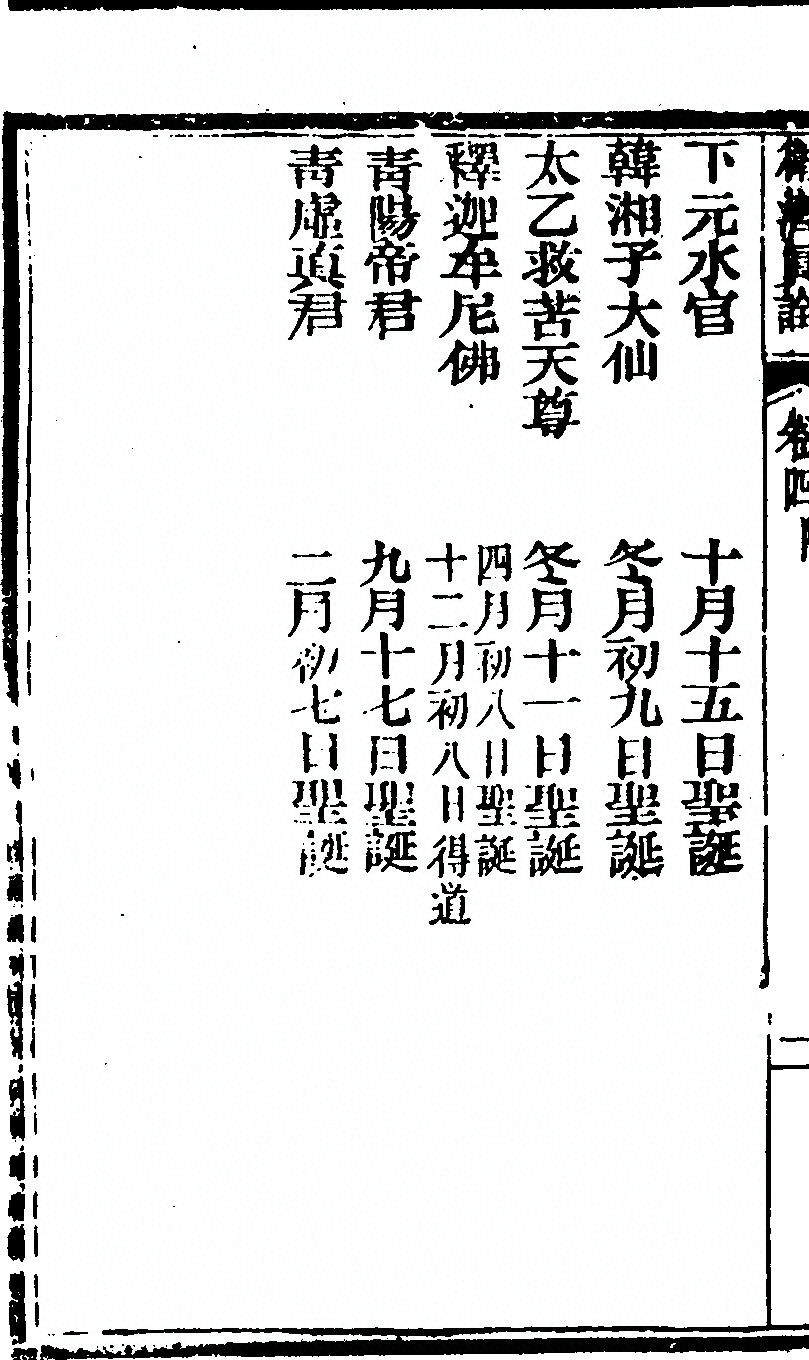 下元水官　十月十五日聖誕
韓湘子大仙　冬月初九日聖誕
太乙救苦天尊　冬月十一日聖誕
釋迦牟尼佛　四月初八日聖誕
十二月初八日得道
青陽帝君　九月十七日聖誕
青虛眞君　二月初七日聖誕
卷四
二